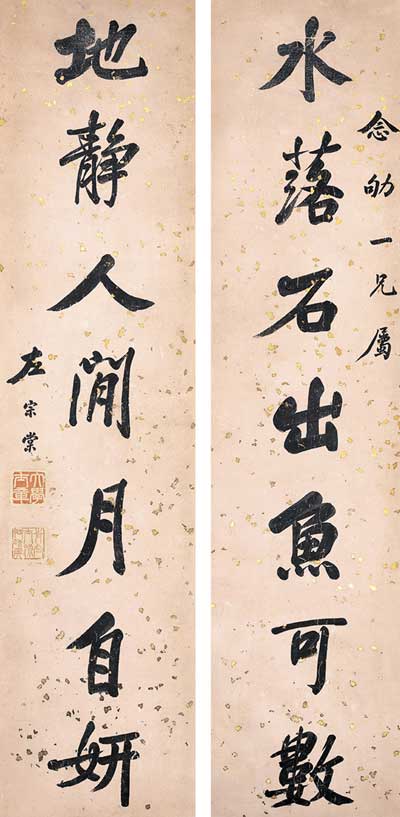 念劬一兄屬
水落石出魚可數
地靜人閒月自妍
左宗棠